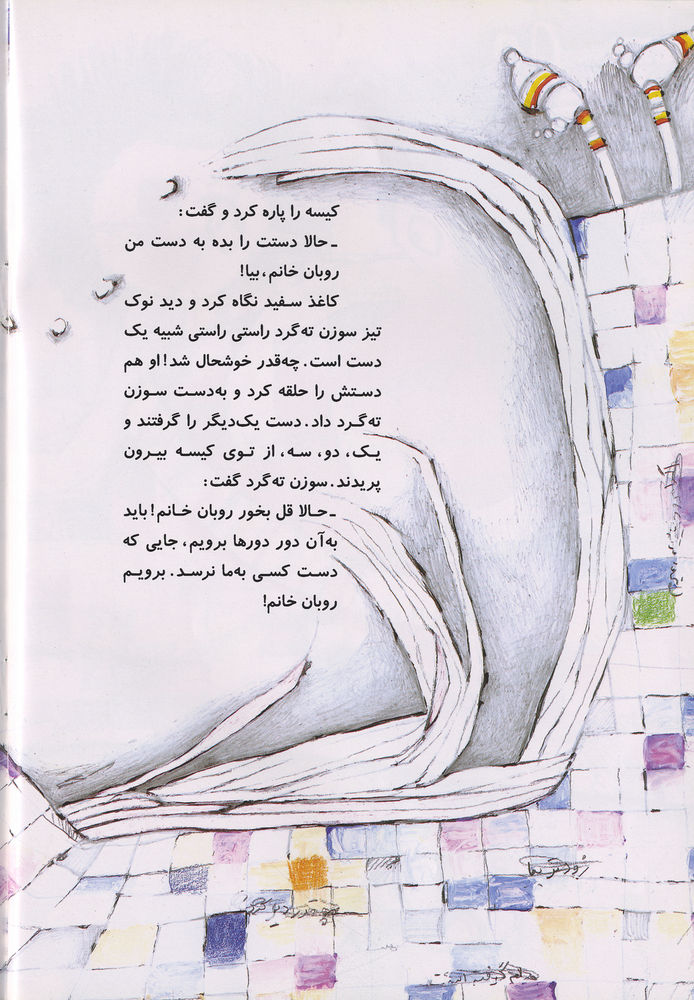 کیسه را پاره کرد و گفت:
ـ حالا دستت را بده به دست من
روبان خانم، بیا!
کاغذ سفید نگاه کرد و دید نوک
تیز سوزن ته‌گرد راستی راستی شبیه یک
دست است. چه‌قدر خوشحال شد! او هم
دستش را حلقه کرد و به‌دست سوزن
ته‌گرد داد. دست یک‌دیگر را گرفتند و
یک، دو، سه، از توی کیسه بیرون
پریدند. سوزن ته‌گرد گفت:
ـ حالا قل بخور روبان خانم! باید
به‌آن دور دورها برویم، جایی که
دست کسی به‌ما نرسد. برویم
روبان خانم!